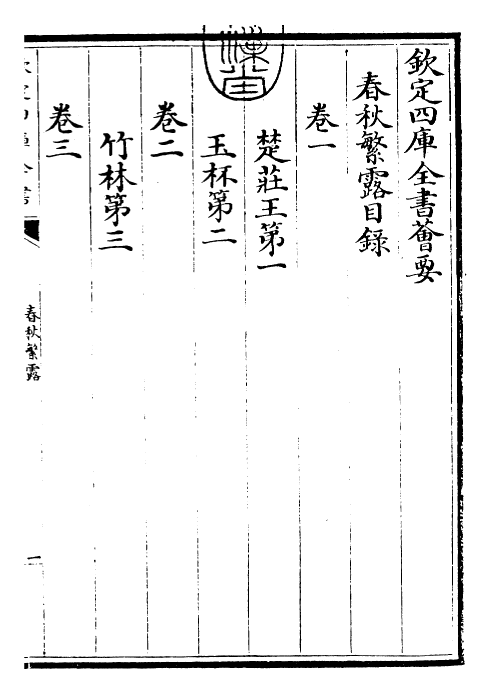 欽定四庫全書薈要
春秋繁露目録
卷一
楚莊王第一
玉杯第二
卷二
竹林第三
卷三
春秋繁露
一